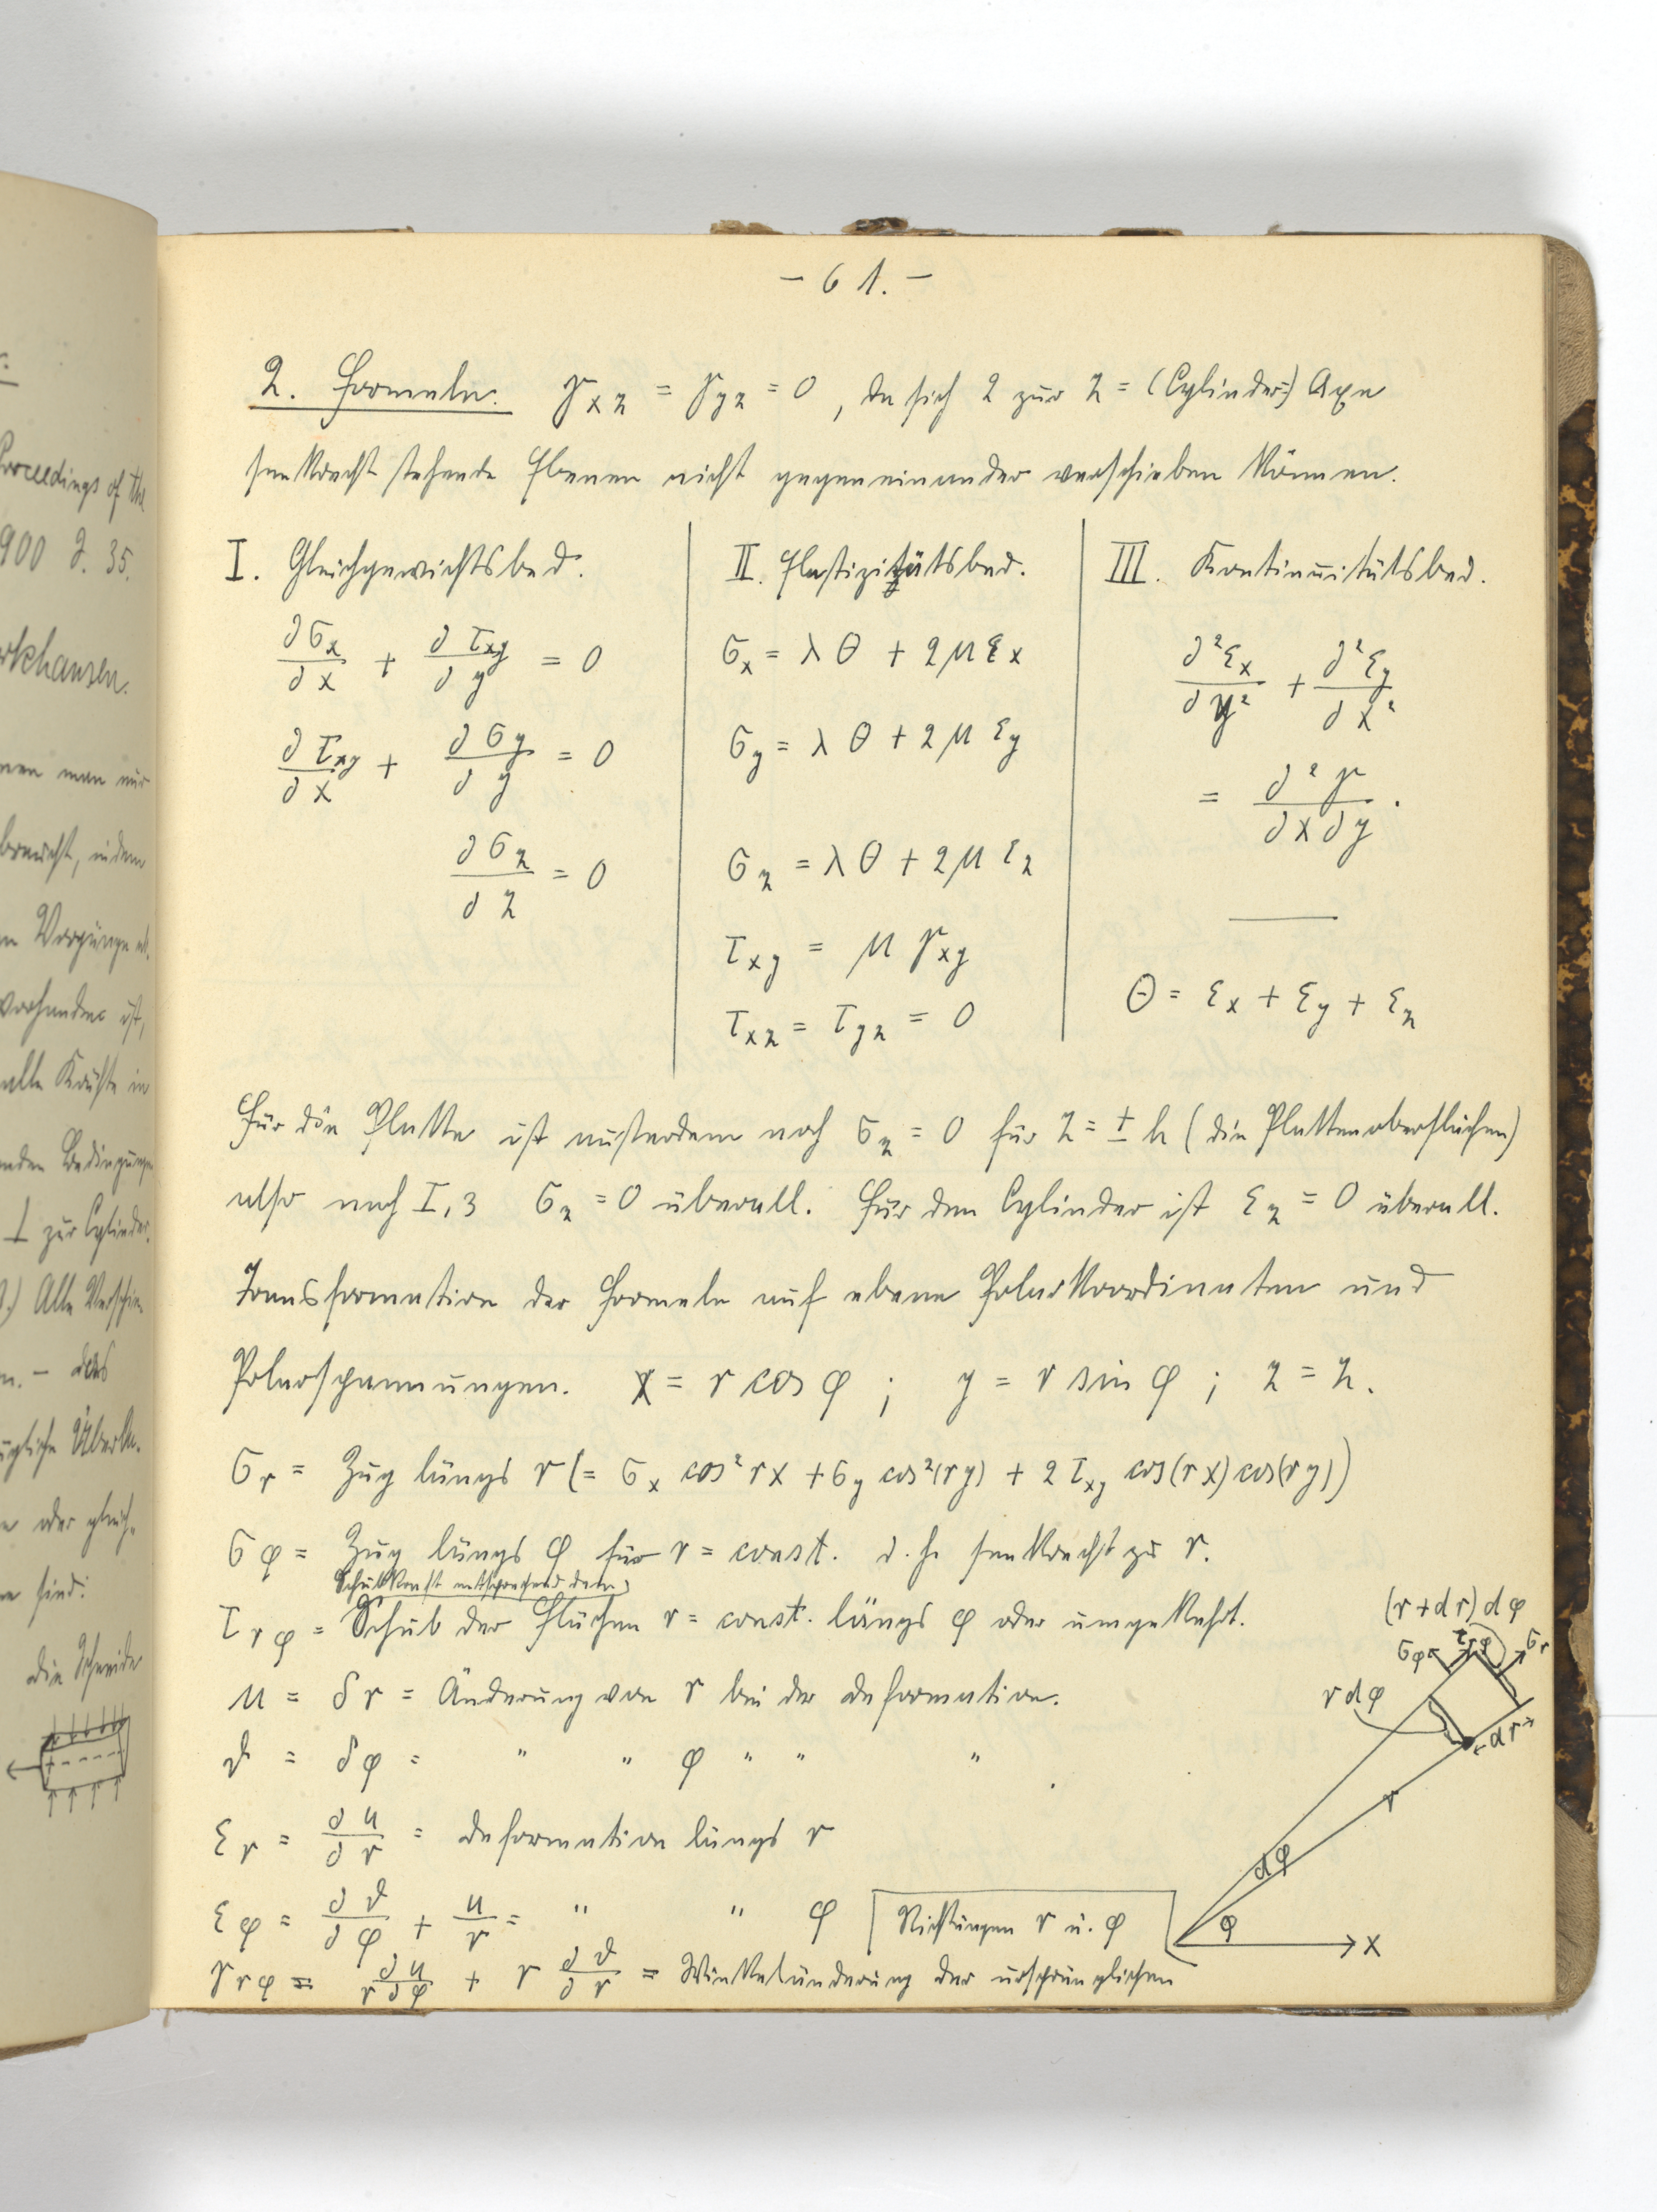 :
Proceedings of the
900 S. 35.
rkhausen.
nen man nur
braucht, indem
n Vorgänge
vorhanden ist,
alle Kräfte in
enden Bedingungen
⊥ zur Cylinder
) Alle Verschie-
n. – das
oder gleich-
ne sind:
die Scheibe
– 61. –
2. Formeln. γxz = γyz = 0 , da sich 2 zur z = (Cylinder=) Axe
senkrecht stehende Ebenen nicht gegeneinander verschieben können.
I. Gleichgewichtsbed.
∂σx/∂x + ∂τxy/∂y = 0
∂τxy/∂x + ∂σy/∂y = 0
∂σz/∂z = 0
II. Elastizitätsbed.
σx = λθ + 2μεx
σy = λθ + 2μεy
σz = λθ + 2μεz
τxy = μγxy
τxz = τyz = 0
III. Kontinuitätsbed.
∂²εx/∂y² + ∂²εy/∂x²
= ∂²γ/∂x∂y .
θ = εx + εy + εz
Für die Platte ist ausserdem noch σz = 0 für z = ± h (die Plattenoberflächen)
also nach I,3 σz = 0 überall. Für den Cylinder ist εz = 0 überall.
Transformation der Formeln auf ebene Polarkoordinaten und
Polarspannungen. x = r cos φ ; y = r sin φ ; z = z.
σr = Zug längs r (= σx cos² rx + σy cos²(ry) + 2 τxy cos(rx) cos(ry))
σφ = Zug längs φ für r = const. d. h. senkrecht zu r.
Schubkraft entsprechend dem
τrφ = Schub der Flächen r = const. längs φ oder umgekehrt.
u = δr = Änderung von r bei der Deformation.
ϑ = δφ = " " φ " " "
εr = ∂u/∂r = Deformation längs r
εφ = ∂ϑ/∂φ + u/r = " " φ
γrφ = ∂u/r∂φ + r ∂ϑ/∂r = Winkeländerung der ursprünglichen
Richtungen r u. φ
(r+dr)dφ
σφ
τrφ
σr
r dφ
dr
r
dφ
φ
x